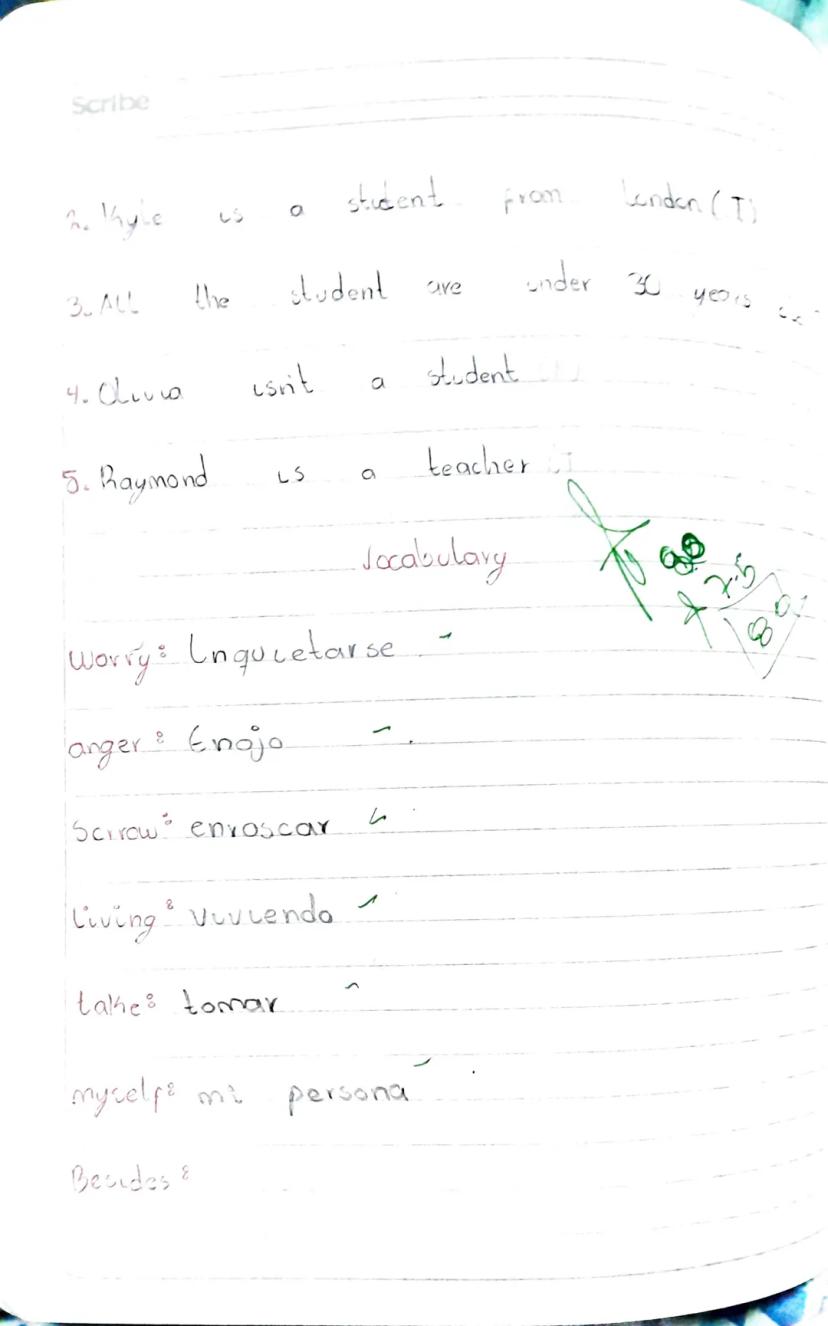 Scribe
2. Kyle is a student from London (T)
3. All the student are under 30 years
4. Olivia isn't a student
5. Raymond is a teacher
Vocabulary
Worry: Inquietarse
anger: Enojo
Scrrow: enroscar
Living: Viviendo
take: tomar
myself: mi persona
Besides: